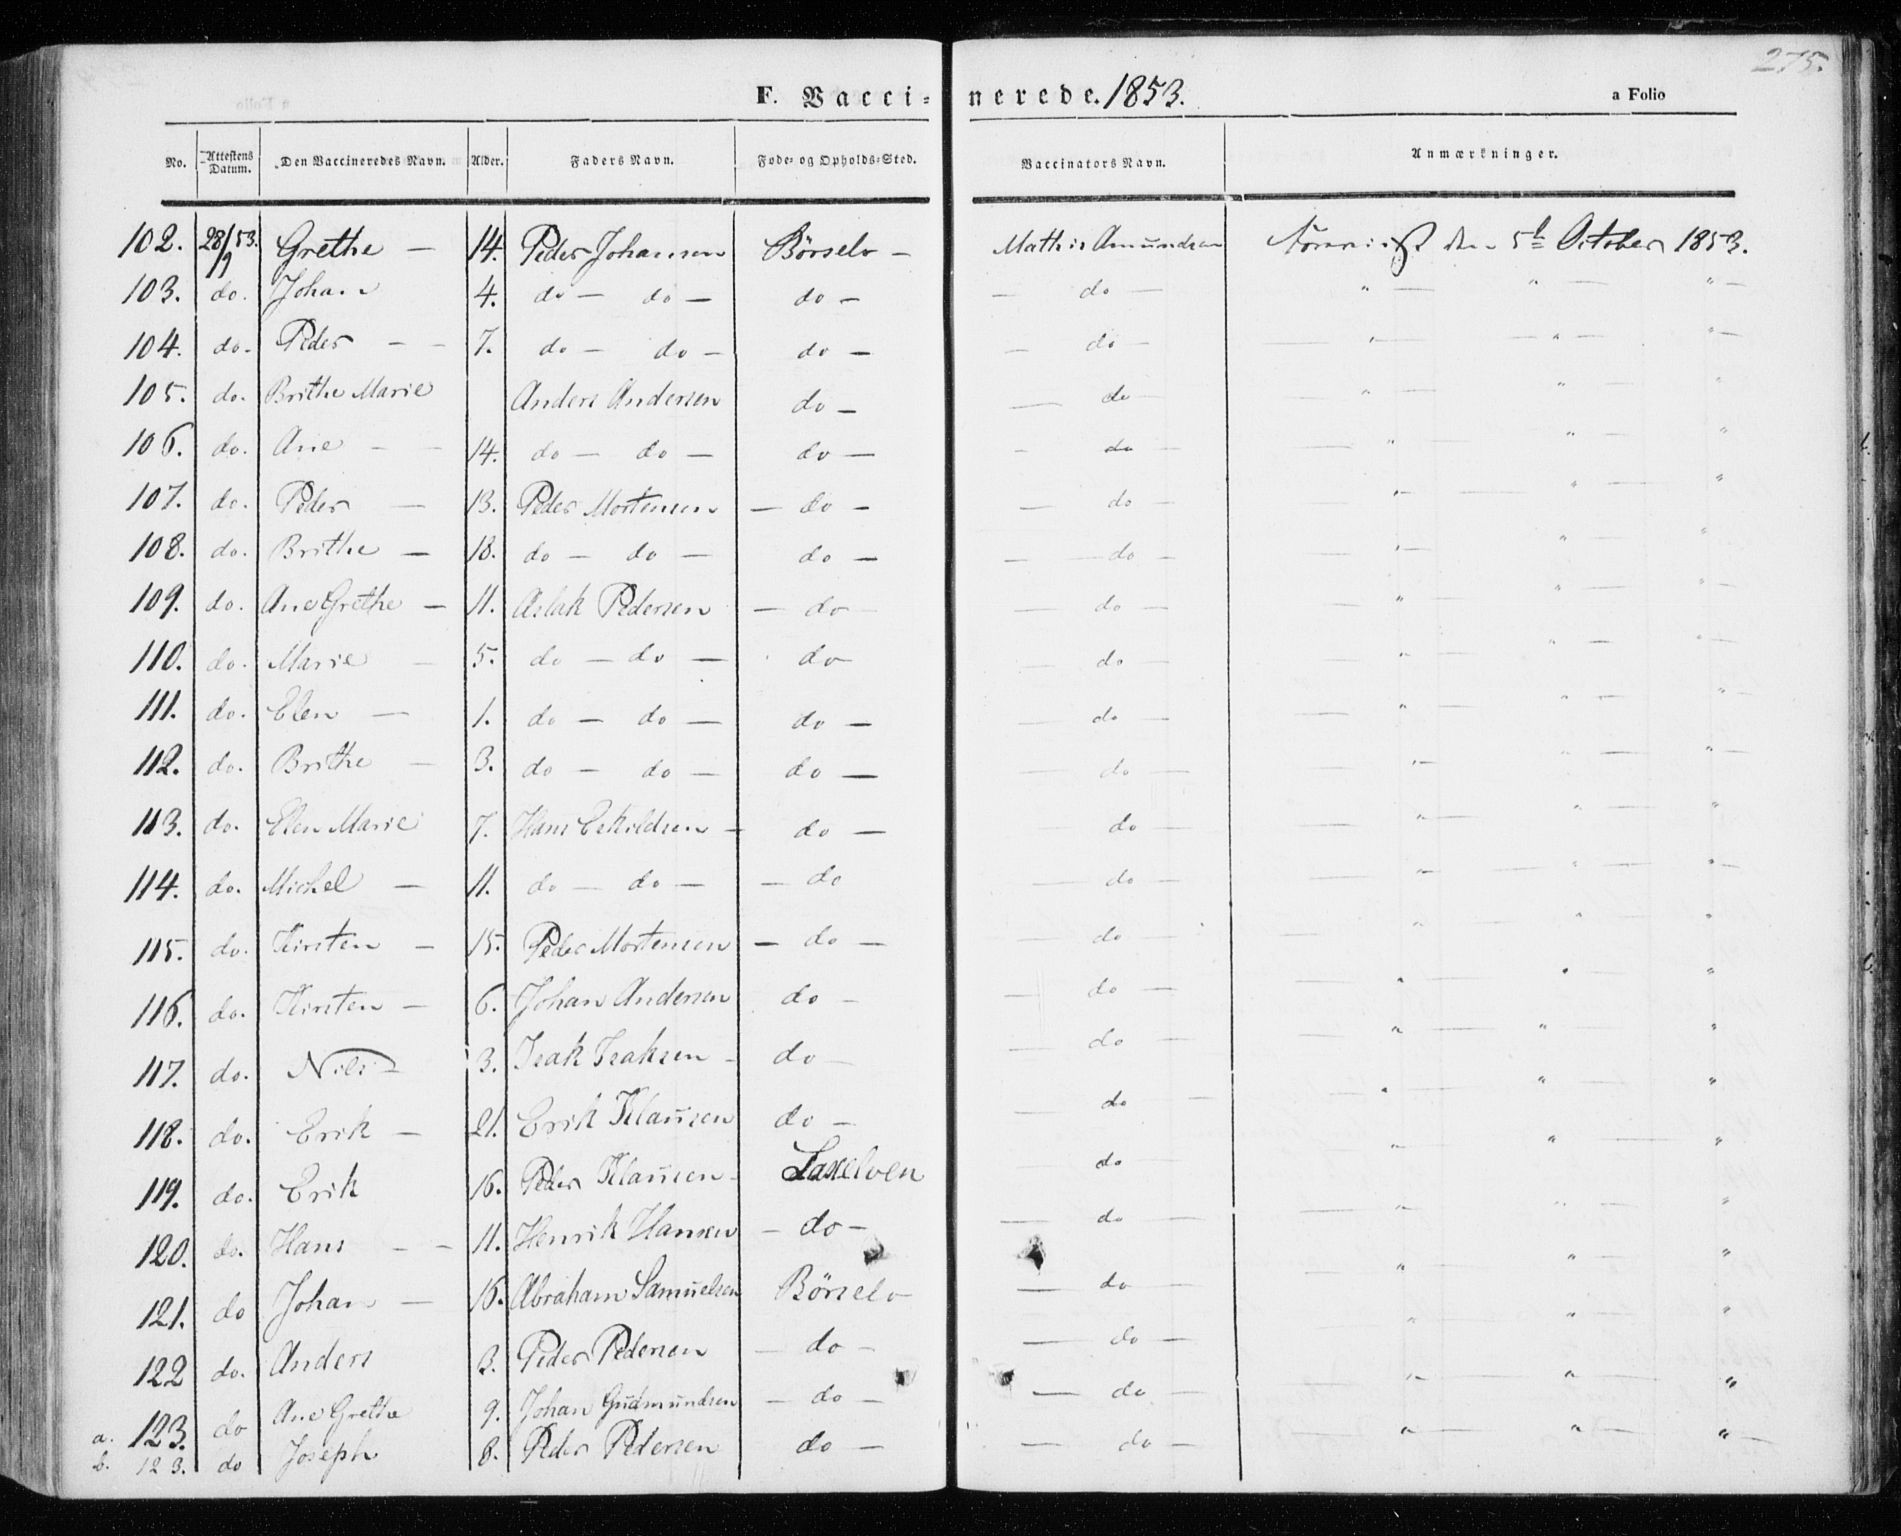 275.
F. Vaccinerede. 1853. a Folio
No. Attestens Datum. Den Vaccineredes Navn. Alder. Faders Navn. Føde- og Opholds-Sted. Vaccinators Navn. Anmærkninger.
102. 28/9 53. Grethe — 14. Peder Johansen Börselv — Mathis Amundsen den 5te October 1853.
103. do. Johan 4. do — do — do — — do — " — " — " —
104. do. Peder — — 7. do — do — do — — do — — " — — " — " —
105. do. Brithe Marie Anders Andersen do — — do — — " — " — "
106. do. Ane — — 14. do — do — do — - do — — " — " — "
107. do. Peder — 13. Peder Mortensen — do — — do — " — — " — "
108. do. Brithe — 18. do — do — do — — do — — " — " — "
109. do. Ane Grethe — 11. Aslak Pedersen — do — — do — — " — " — " —
110. do. Marie — 5. do — do — do — — do — — " — " — " —
111. do. Elen — 1. do — do — do — — do — — " — " — " —
112. do. Brithe — 3. do — do — do — — do — " — " — " —
113. do. Elen Marie 7. Hans Eskildsen — do — do — — " — " — "
114. do. Michel — 11. do — do — — do — do — — " — — " — " —
115. do. Kirsten — 15. Peder Mortensen — do — — do — — " — " — "
116. do. Kirsten — 6. Johan Andersen do — — do — — " — " — "
117. do. Nils — 3. Isak Isaksen — do — — do — — " — " — "
118. do. Erik — 21. Erik Klausen do — — do — " — " — "
119. do. Erik 16. Peder Klausen — Laxelven — do " — " — "
120. do. Hans — — 11. Henrik Hansen — do — — do — — " — " — "
121. do Johan — 16. Abraham Samuelsen Börselv — do — — " — " — "
122 do. Anders 3. Peder Pedersen — do — — do — " — " — "
a. 123. do Ane Grethe 9. Johan Gudmundsen — do — — do — " — " — "
b. 123. do Joseph 8. Peder Pedersen do — — do — " — " — " —